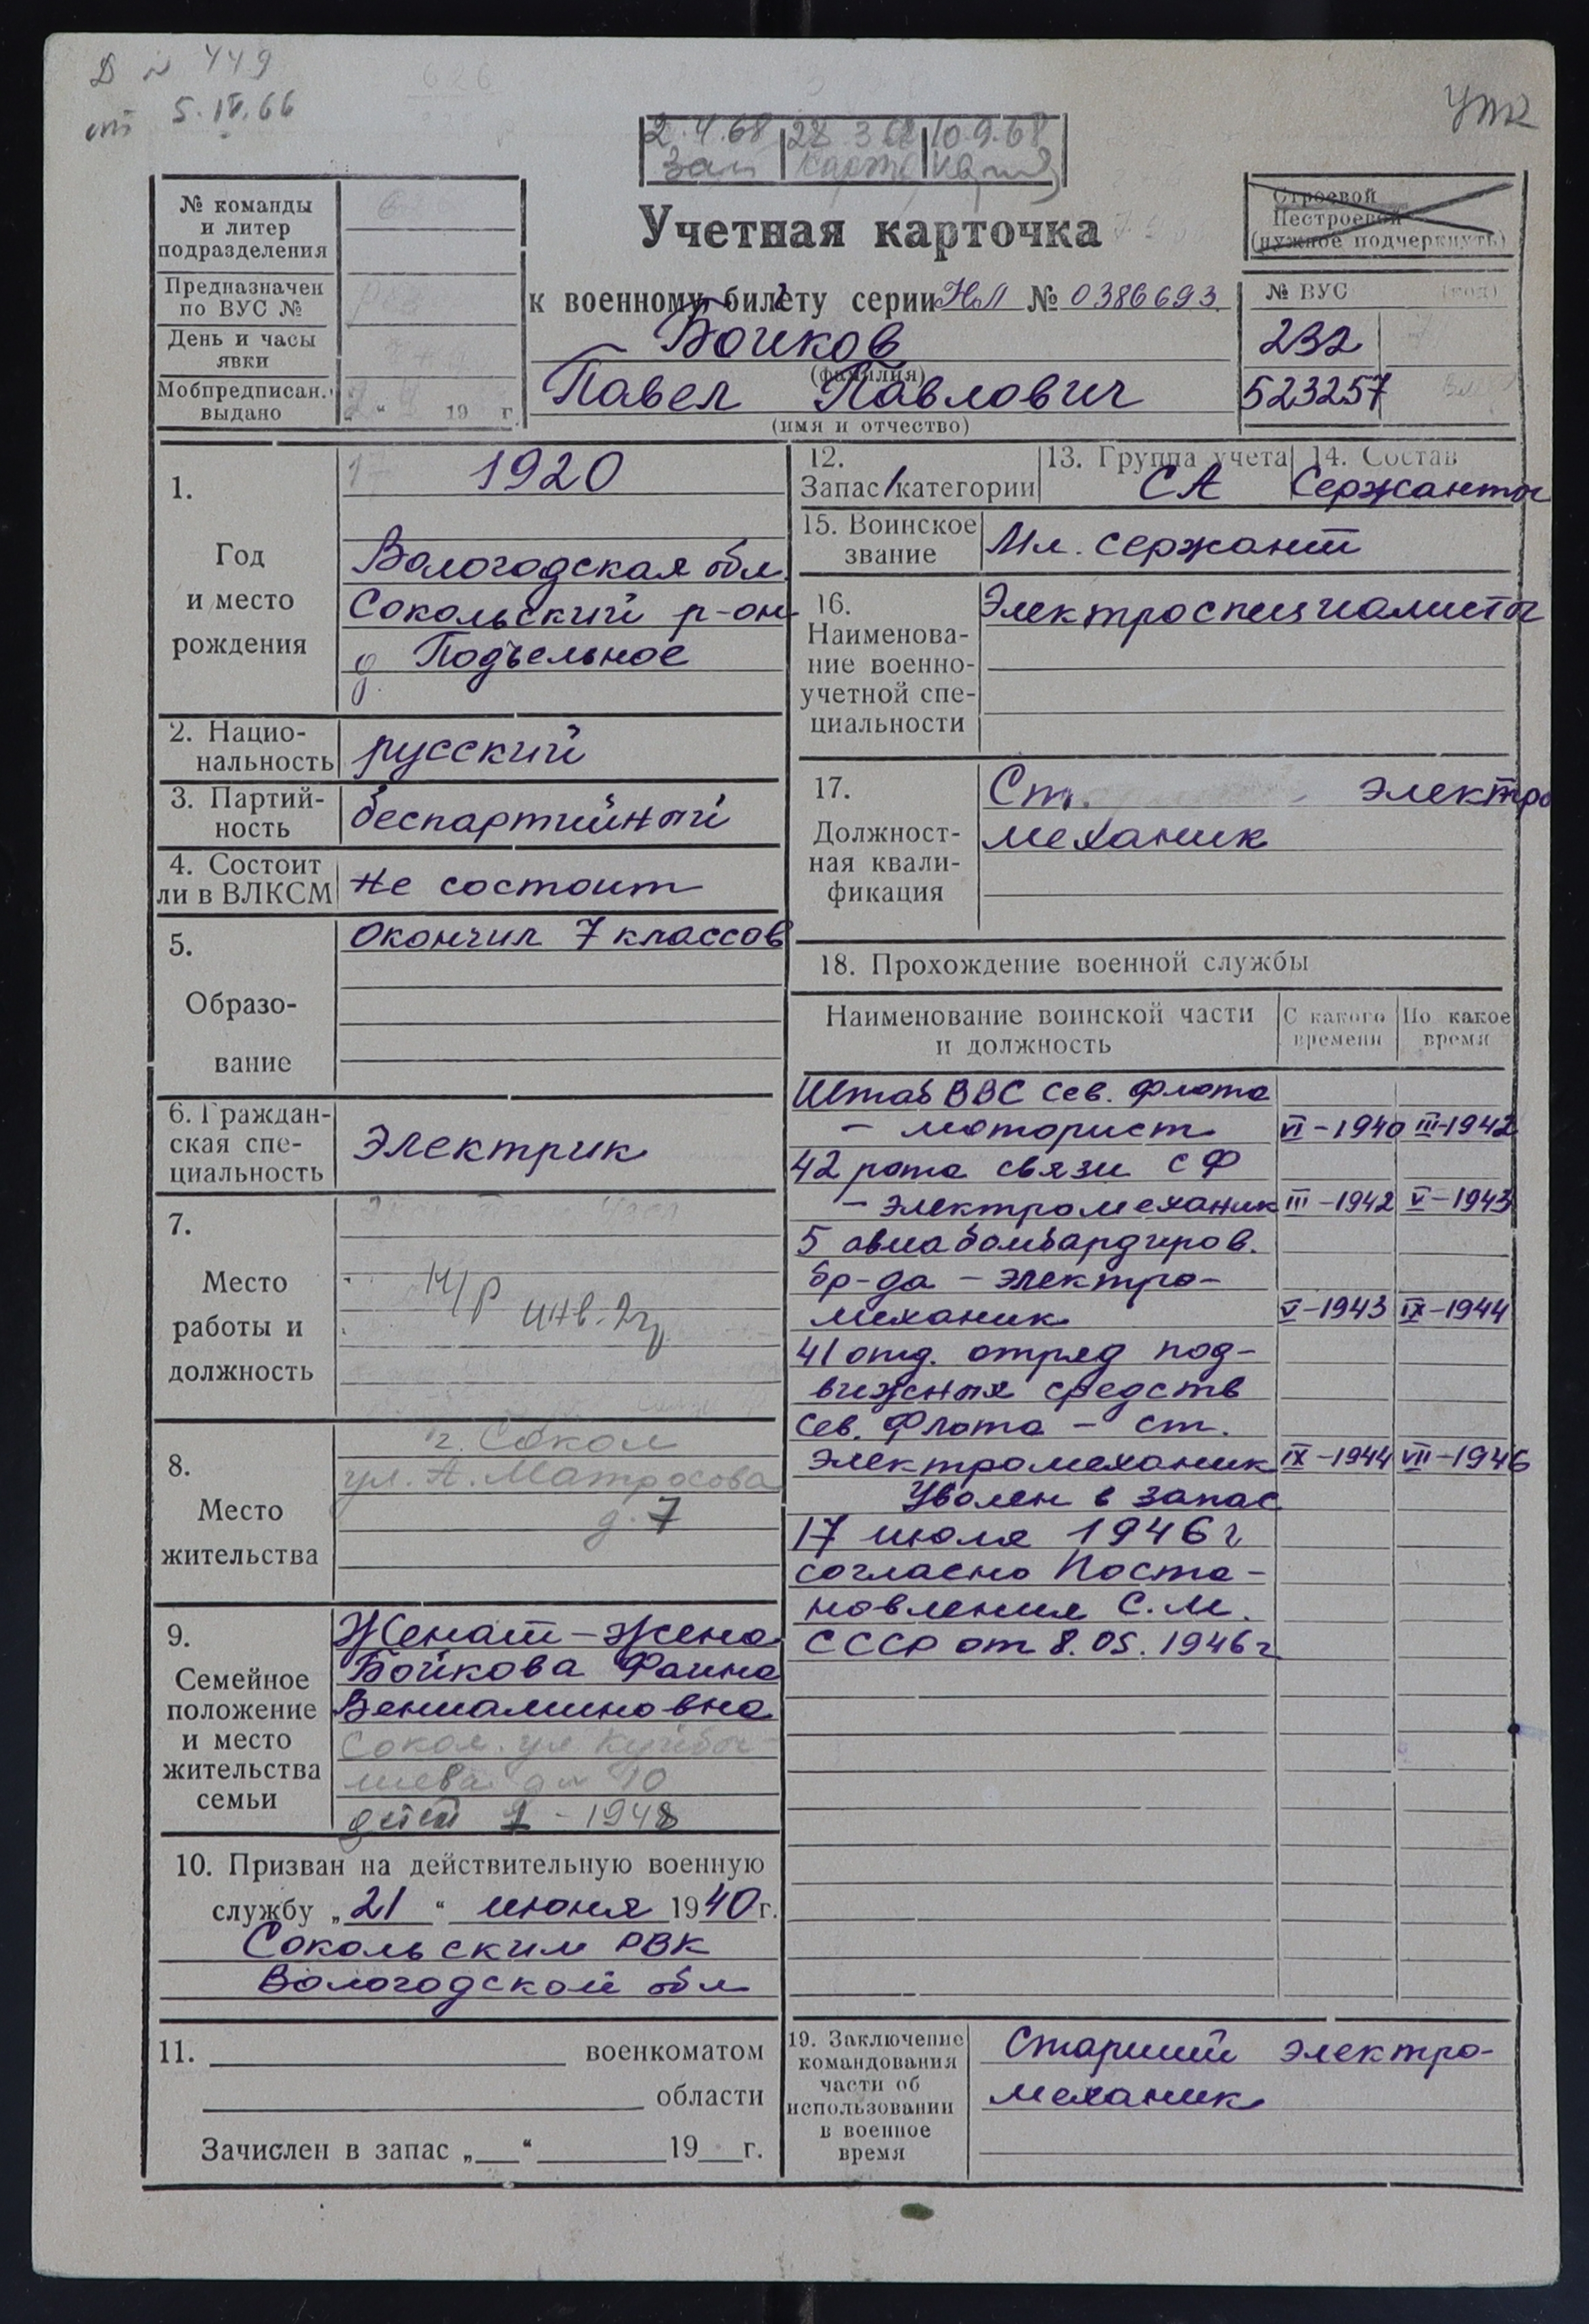 Д № 449
от 5.IV.66
УПК
2.4.68 28.3.68 10.9.68
№ команды
и литер
подразделения
Предназначен
по ВУС №
День и часы
явки
Мобпредписан.
выдано „ “ 19 г.
Учетная карточка
к военному билету серии НЛ № 0386693
Бойков
(фамилия)
Павел Павлович
(имя и отчество)
Строевой
Нестроевой
(нужное подчеркнуть)
№ ВУС (код)
232
523257
1.
Год
и место
рождения
1920
Вологодская обл.
Сокольский р-он
д. Подъельное
2. Нацио-
нальность
русский
3. Партий-
ность
беспартийный
4. Состоит
ли в ВЛКСМ
не состоит
5.
Образо-
вание
Окончил 7 классов
6. Граждан-
ская спе-
циальность
Электрик
7.
Место
работы и
должность
н/р инв. 2 гр
8.
Место
жительства
г. Сокол
ул. А. Матросова
д. 7
9.
Семейное
положение
и место
жительства
семьи
Женат – жена
Бойкова Фаина
Вениаминовна
Сокол. ул Куйбы-
шева д 10
детей 1 - 1948
10. Призван на действительную военную
службу „21“ июня 1940 г.
Сокольским РВК
Вологодской обл
11. военкоматом
области
Зачислен в запас „ “ 19 г.
12.
Запас 1 категории
13. Группа учета
СА
14. Состав
Сержанты
15. Воинское
звание
Мл. сержант
16.
Наименова-
ние военно-
учетной спе-
циальности
Электроспециалисты
17.
Должност-
ная квали-
фикация
Ст. электро
механик
18. Прохождение военной службы
Наименование воинской части
и должность
С какого
времени
По какое
время
Штаб ВВС Сев. Флота
– моторист VI – 1940 III-1942
42 рота связи СФ
– электромеханик III – 1942 V – 1943
5 авиабомбардиров.
бр-да – электро-
механик V – 1943 IX – 1944
41 отд. отряд под-
вижных средств
Сев. Флота – ст.
электромеханик IX – 1944 VII – 1946
Уволен в запас
17 июля 1946 г
согласно Поста-
новления С.М.
СССР от 8.05.1946 г
19. Заключение
командования
части об
использовании
в военное
время
Старший электро-
механик